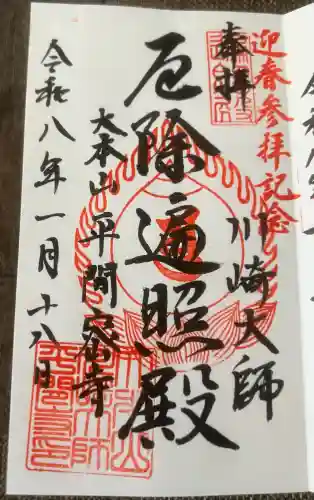 迎春参拝記念
奉拝
川崎大師
厄除遍照殿
大本山 平間密寺
令和八年一月十八日